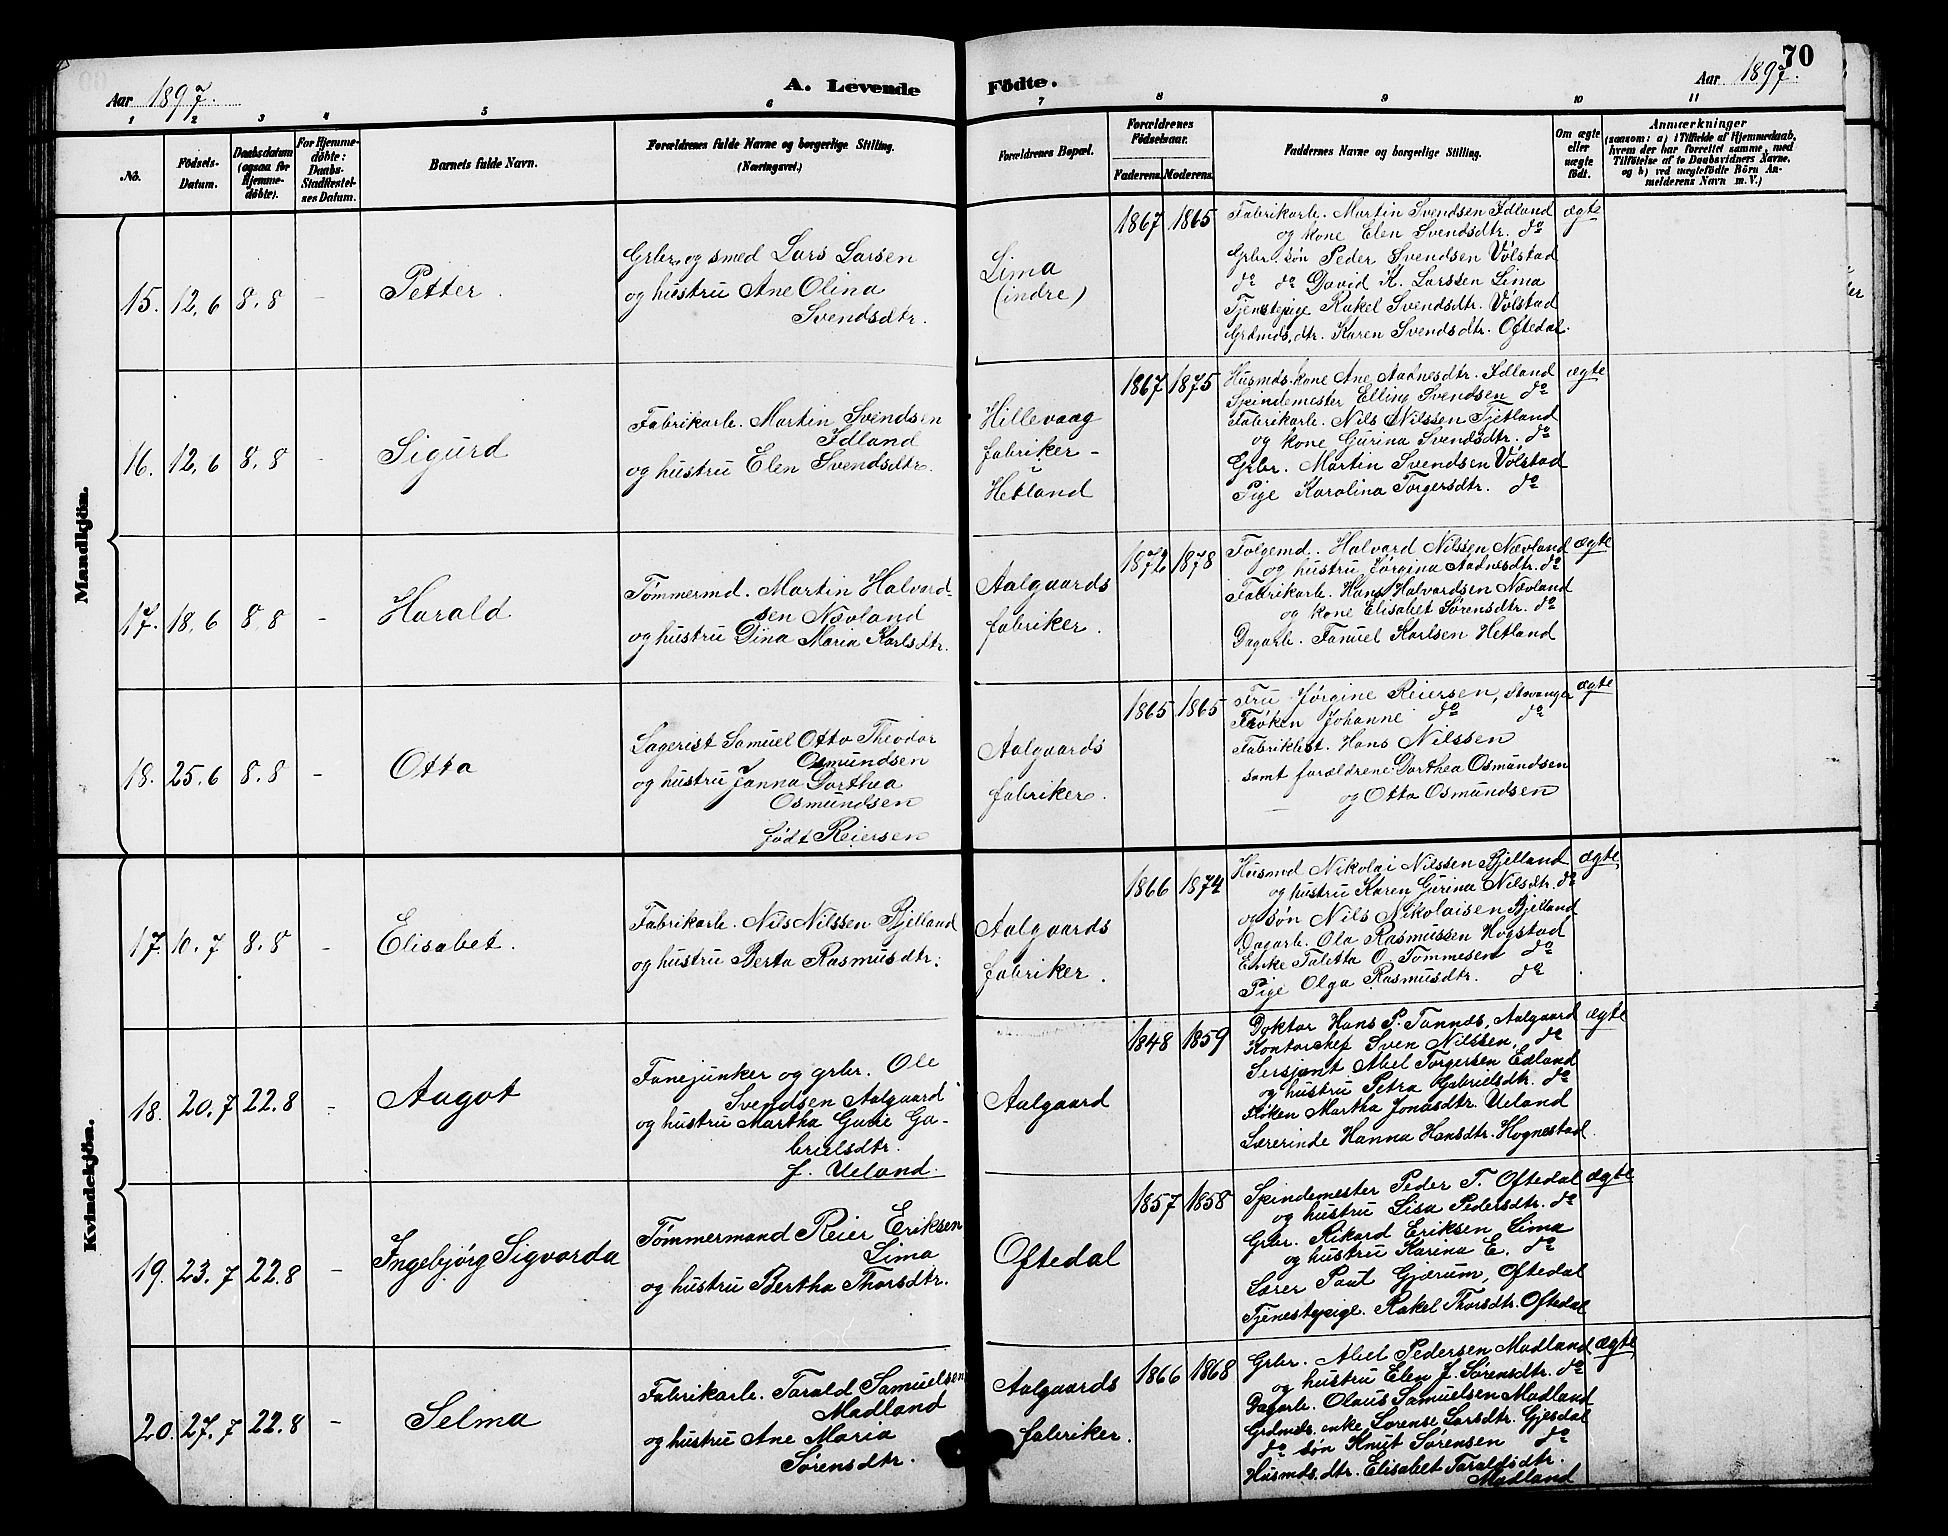 70
Aar 1897.
A. Levende
Födte.
Aar 1897.
1 2 3 4 5 6 7 8 9 10 11
No.
Födsels-
Datum.
Daabsdatum
(ogsaa for
Hjemme-
döbte).
For Hjemme-
döbte:
Daabs-
Stadfæstel-
ses Datum.
Barnets fulde Navn.
Forældrenes fulde Navne og borgerlige Stilling.
(Næringsvei.)
Forældrenes Bopæl.
Forældrenes
Födselsaar.
Faderens. Moderens.
Faddernes Navne og borgerlige Stilling.
Om ægte
eller
uægte
födt.
Anmærkninger
(saasom: a) i Tilfælde af Hjemmedaab,
hvem der har forrettet samme, med
Tilföielse af to Daabsvidners Navne,
og b) ved uægtefödte Börn An-
melderens Navn m. V.)
Mandkjön.
15. 12.6 8.8 -
Petter.
Grbr. og smed Lars Larsen
og hustru Ane Olina
Svendsdtr.
Lima
(indre)
1867 1865
Fabrikarb. Martin Svendsen Idland
og kone Elen Svendsdtr. do
Grbr. søn Peder Svendsen Vølstad
do do David K. Larssen Lima
Tjenstepige Rakel Svendsdtr. Vølstad
Grdmds.dtr. Karen Svendsdtr. Oftedal.
ægte
16. 12.6 8.8 -
Sigurd
Fabrikarb. Martin Svendsen
Idland
og hustru Elen Svendsdtr.
Hillevaag
fabriker -
Hetland
1867 1875
Husmds. kone Ane Aadnesdtr. Idland
Spindemester Elling Svendsen do
Fabrikarb. Nils Nilssen Tjetland
og kone Gurina Svendsdtr. do
Grbr. Martin Svendsen Vølstad
Pige Karolina Torgersdtr. do
ægte
17. 18.6 8.8 -
Harald
Tømmermd. Martin Halvard-
sen Nævland
og hustru Dina Maria Karlsdtr.
Aalgaards
fabriker.
1872 1878
Folgemd. Halvard Nilssen Nævland
og hustru Jørgina Aadnesdtr. do
Fabrikarb. Hans Halvardsen Nævland
og kone Elisabet Sørensdtr. do
Dagarb. Fanuel Karlsen Hetland
ægte
18. 25.6 8.8 -
Otto
Lagerist Samuel Otto Theodor
Osmundsen
og hustru Janna Dorthea
Osmundsen
født Reiersen
Aalgaards
fabriker.
1865 1865
Fru Jørgine Reiersen, Stavanger
Frøken Johanne do do
Fabrikbest. Hans Nilssen
samt forældrene: Dorthea Osmundsen
og Otto Osmundsen
ægte
Kvindekjön.
17. 10.7 8.8 -
Elisabet.
Fabrikarb. Nils Nilssen Bjelland
og hustru Berta Rasmusdtr.
Aalgaards
fabriker.
1866 1874
Husmd Nikolai Nilssen Bjelland
og hustru Karen Gurina Nilsdtr. do
og søn Nils Nikolaisen Bjelland
Dagarb. Ola Rasmussen Høgstad
Enke Taletta O. Tommesen do
Pige Olga Rasmusdtr. do
ægte
18. 20.7 22.8 -
Aagot
Fanejunker og grbr. Ole
Svendsen Aalgaard
og hustru Martha Gurie Ga-
brielsdtr.
f. Ueland.
Aalgaard
1848 1859
Doktor Hans P. Tannæs, Aalgaard
Kontorchef Sven Nilssen, do
Sersjant Abel Torgersen Edland
og hustru Petra Gabrielsdtr. do
Frøken Martha Jonasdtr. Ueland
Lærerinde Hanna Hansdtr. Hognestad
ægte
19. 23.7 22.8 -
Ingebjørg Sigvarda
Tømmermand Reier Eriksen
Lima
og hustru Bertha Thorsdtr.
Oftedal
1857 1858
Spindemester Peder T. Oftedal
og hustru Lisa Pedersdtr. do
Grbr. Rikard Eriksen Lima
og hustru Karina E. do
Lærer Paul Gjærum, Oftedal
Tjenestepige. Rakel Thorsdtr. Oftedal
ægte
20. 27.7 22.8 -
Selma
Fabrikarb. Tarald Samuelsen
Madland
og hustru Ane Maria
Sørensdtr.
Aalgaards
fabriker.
1866 1868
Grbr. Abel Pedersen Madland
og hustru Elen J. Sørensdtr. do
Dagarb. Olaus Samuelsen Madland
Grdmds. enke Lorense Larsdtr. Gjesdal
do søn Knut Sørensen do
Husmds.dtr. Elisabet Taraldsdtr.
Madland
ægte